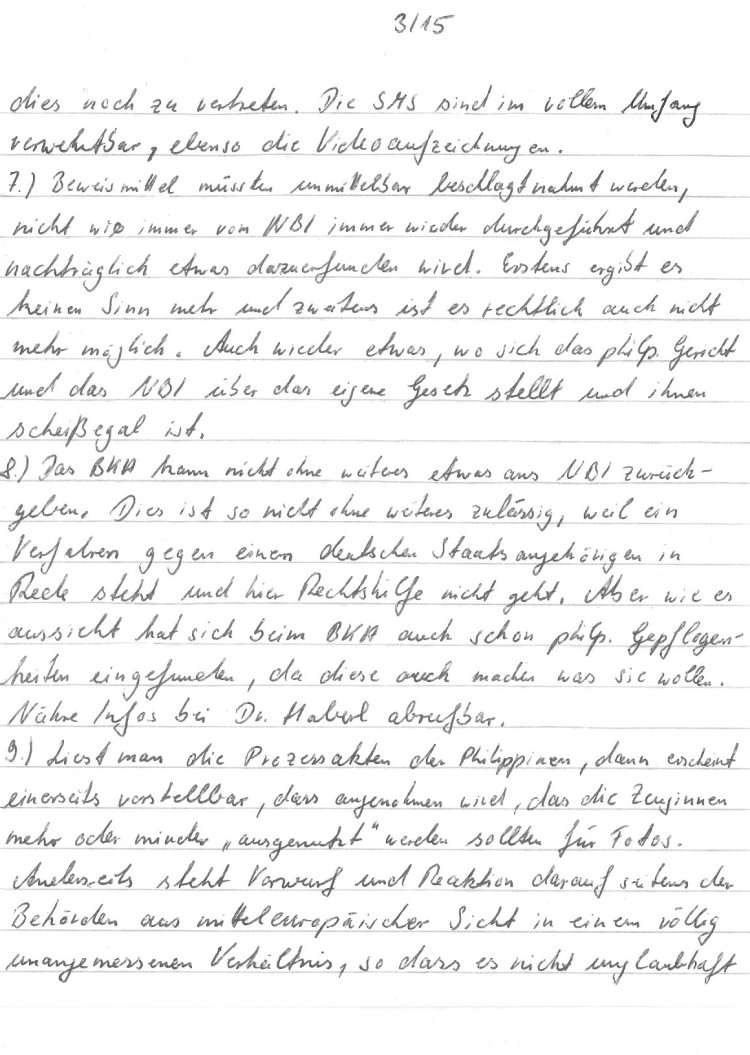 3/15
dies noch zu vertreten. Die SMS sind im vollem Umfang
verwehrtbar, ebenso die Videoaufzeichnungen.
7.) Beweismittel müssten unmittelbar beschlagtnahmt werden,
nicht wie immer vom NBI immer wieder durchgeführt und
nachträglich etwas dazuerfunden wird. Erstens ergibt es
keinen Sinn mehr und zweitens ist es rechtlich auch nicht
mehr möglich. Auch wieder etwas, wo sich das philp. Gericht
und das NBI über das eigene Gesetz stellt und ihnen
scheißegal ist.
8.) Das BKA kann nicht ohne weiteres etwas ans NBI zurück-
geben. Dies ist so nicht ohne weiteres zulässig, weil ein
Verfahren gegen einen deutschen Staatsangehörigen in
Rede steht und hier Rechtshilfe nicht geht. Aber wie es
aussieht hat sich beim BKA auch schon philp. Gepflogen-
heiten eingefunden, da diese auch machen was sie wollen.
Nähre Infos bei Dr. Haberl abrufbar.
9.) Liest man die Prozessakten der Philippinen, dann erscheint
einerseits vorstellbar, dass angenohmen wird, das die Zeuginnen
mehr oder minder „ausgenutzt" werden sollten für Fotos.
Anderseits steht Vorwurf und Reaktion darauf seitens der
Behörden aus mitteleuropäischer Sicht in einem völlig
unangemessenen Verhältnis, so dass es nicht unglaubhaft